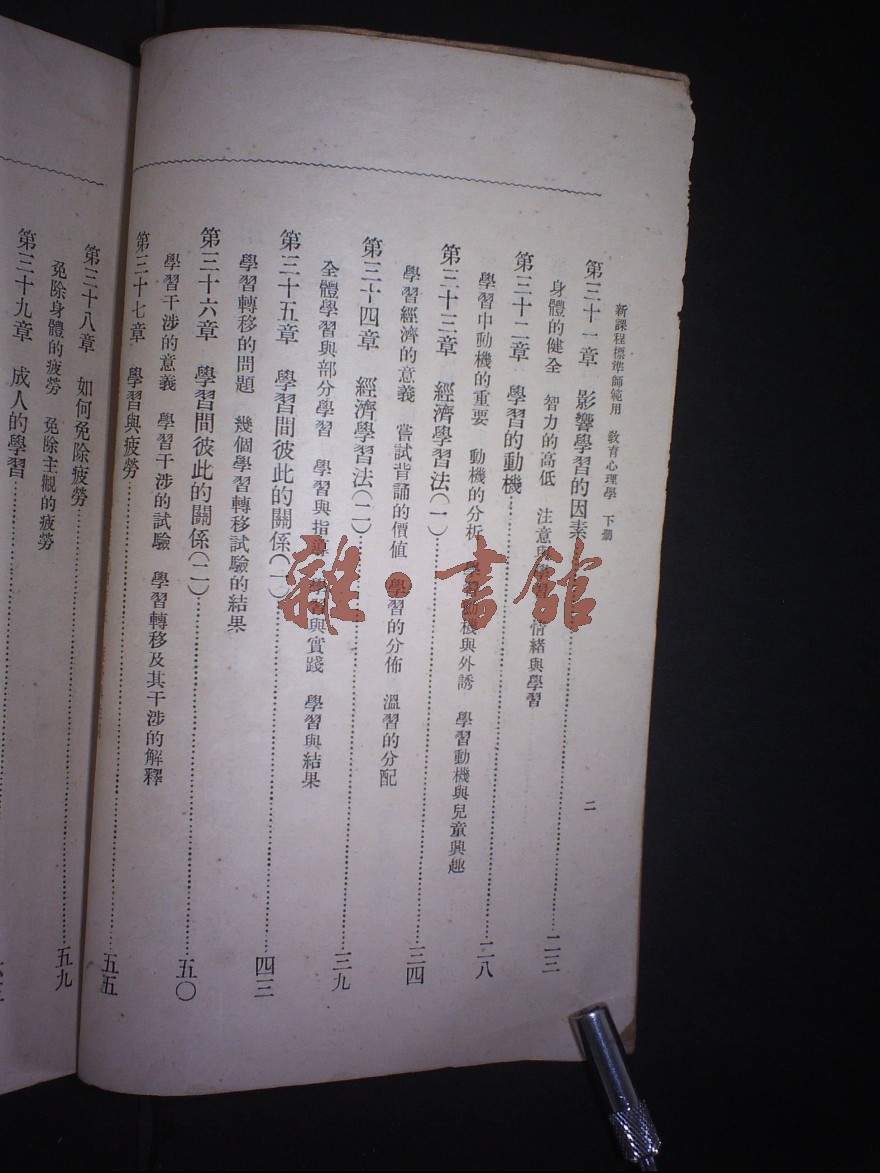 新課程標準師範用　教育心理學　下册
二
第三十一章　影響學習的因素…………二三
身體的健全　智力的高低　注意與學習　情緒與學習
第三十二章　學習的動機…………二八
學習中動機的重要　動機的分析　學習動機與外誘　學習動機與兒童興趣
第三十三章　經濟學習法(一)…………三四
學習經濟的意義　嘗試背誦的價值　學習的分佈　溫習的分配
第三十四章　經濟學習法(二)…………三九
全體學習與部分學習　學習與指導　學習與實踐　學習與結果
第三十五章　學習間彼此的關係(一)…………四三
學習轉移的問題　幾個學習轉移試驗的結果
第三十六章　學習間彼此的關係(二)…………五〇
學習干涉的意義　學習干涉的試驗　學習轉移及其干涉的解釋
第三十七章　學習與疲勞…………五五
第三十八章　如何免除疲勞…………五九
免除身體的疲勞　免除主觀的疲勞
第三十九章　成人的學習…………
雜·書館